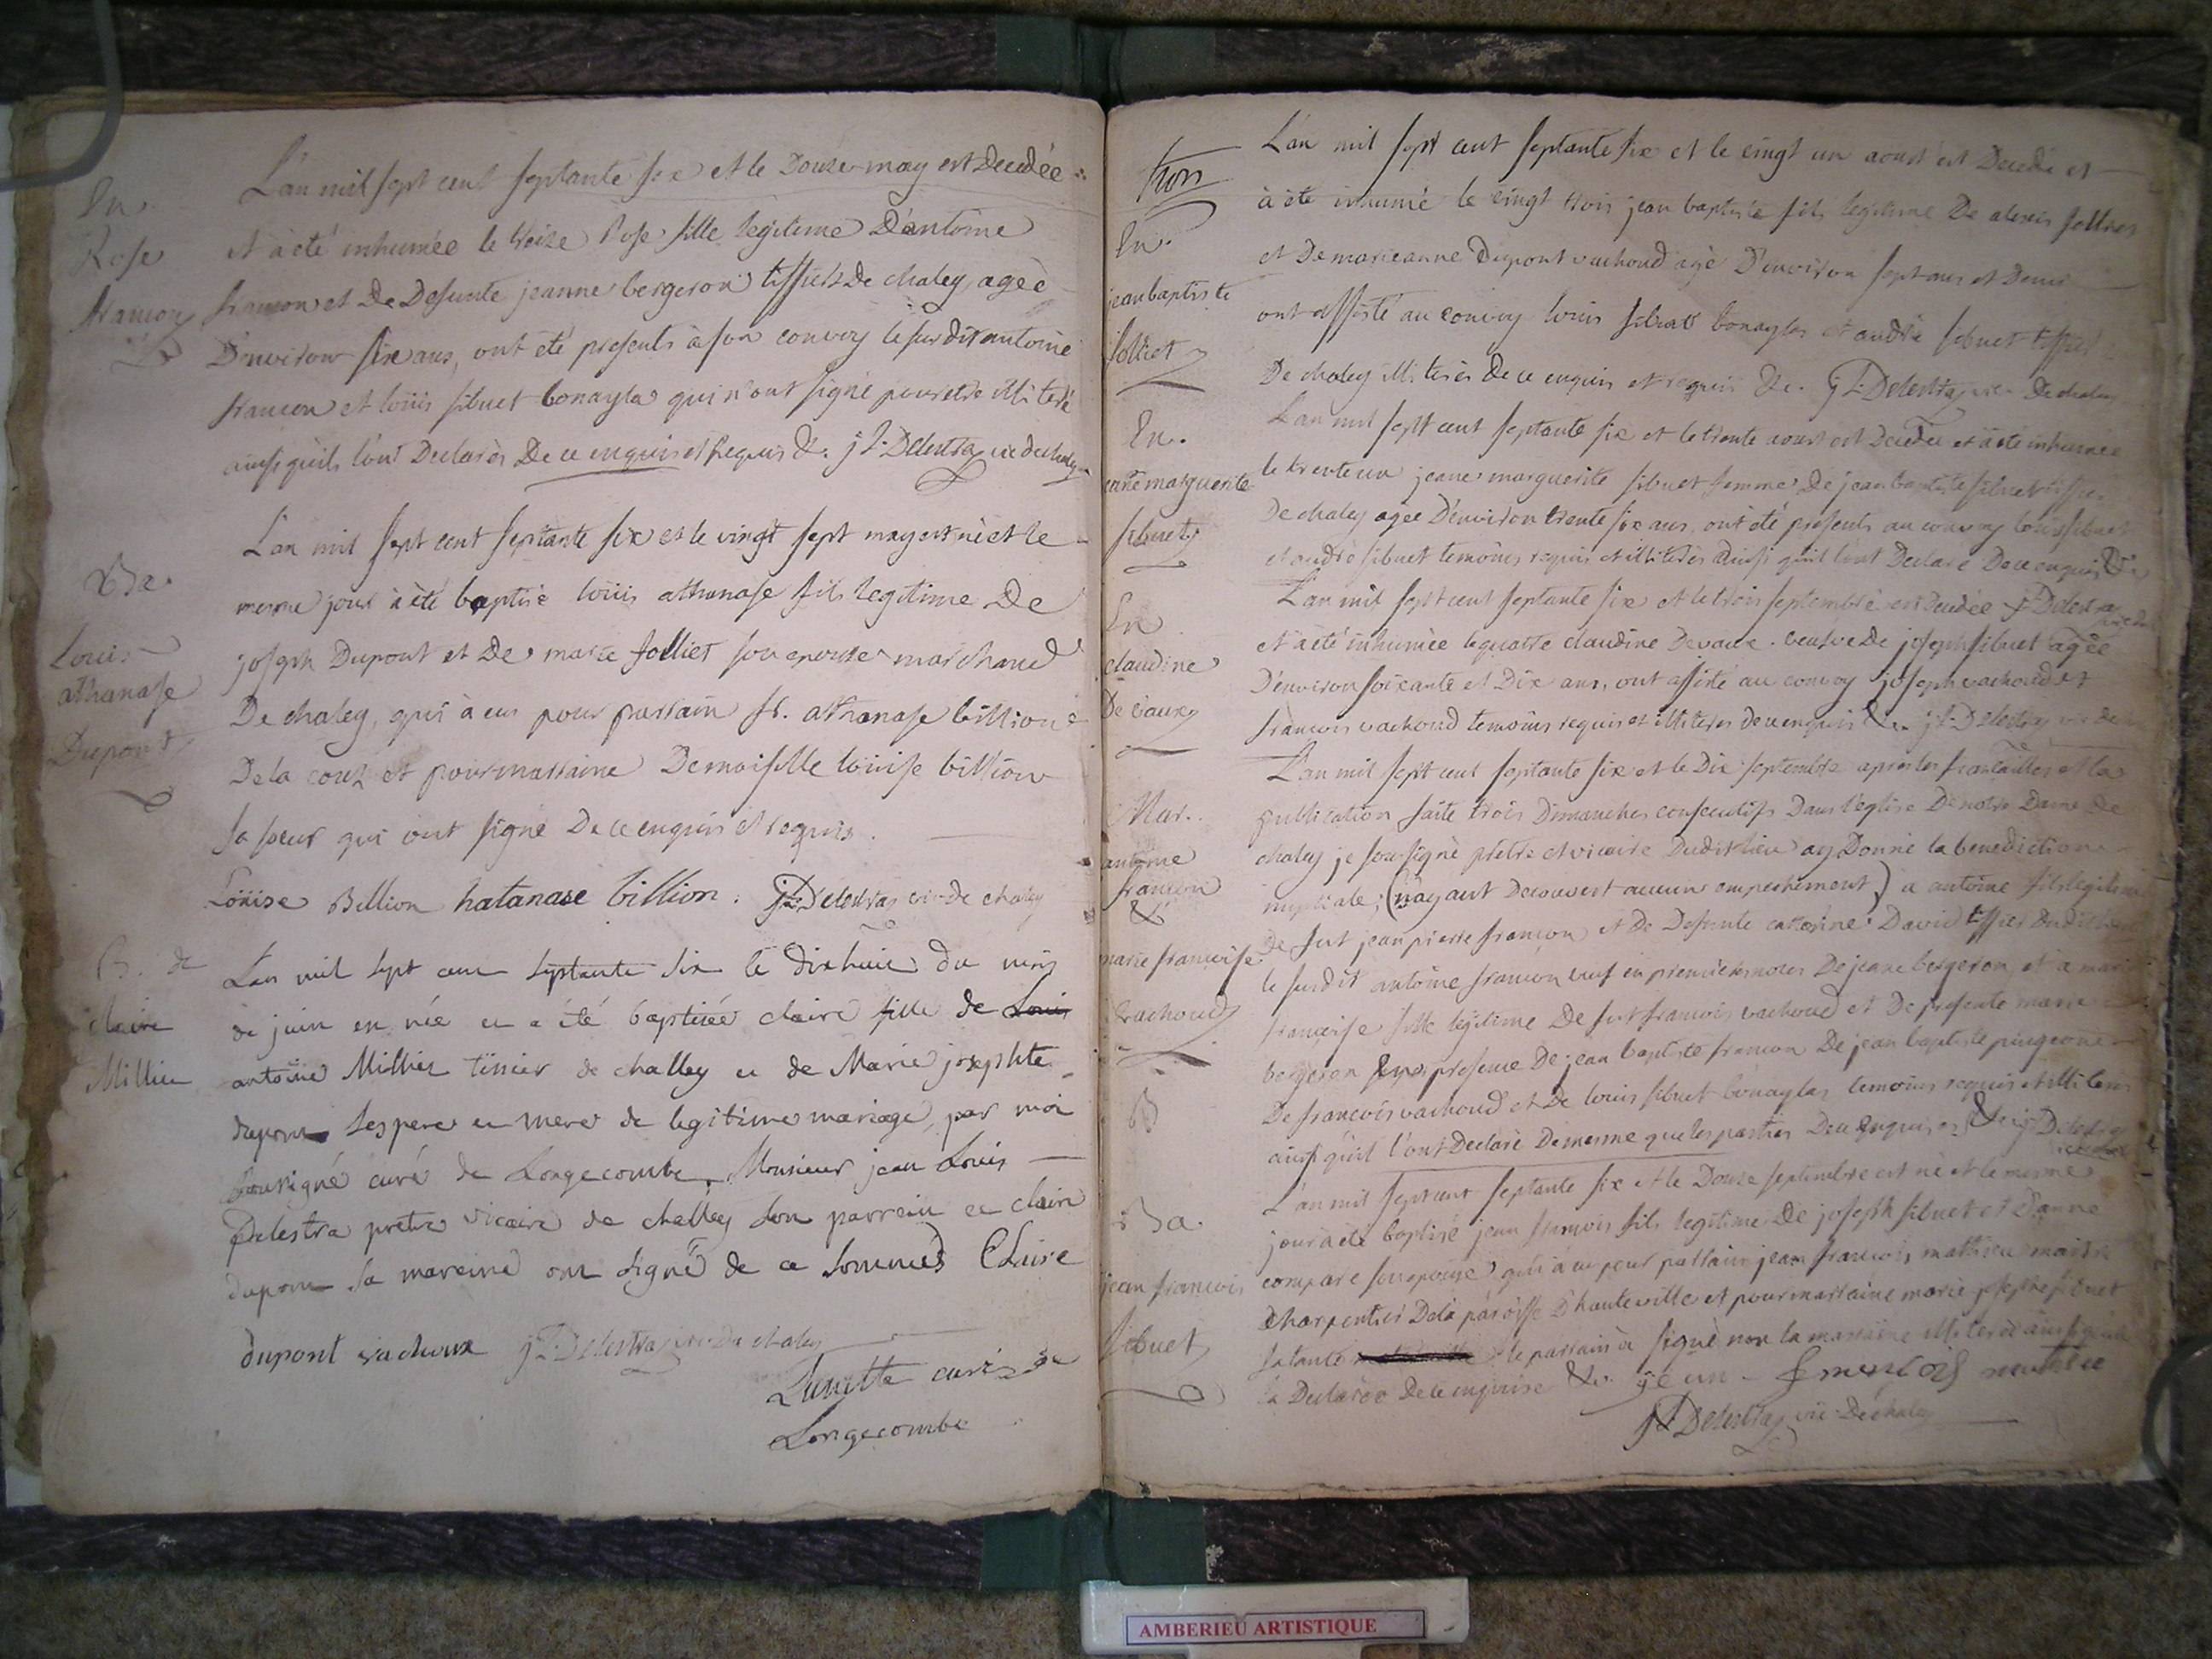 En.
Rose
francon
L'an mil sept cent septante six et le Douze may est Decedée
et à eté inhumée le treize Rose fille legitime D'antoine
francon et De Defunte jeanne bergeron tissier De chaley, agèe
D'environ six ans, ont été presents à son convoy le susdit antoine
francon et loüis sibuet bonayla qui n'ont signé pour etre illiteré
ainsi qu'ils l'ont Declarès De ce enquis et Requis &. j L. Delestra vic de chaley
Ba.
Louis
athanase
Dupont
L'an mil sept cent septante six et le vingt sept may est nè et le
mesme jour à été baptisé loüis athanase fils legitime De
joseph Dupont et De marie Jolliet son epouse marchand
De chaley, qui à eu pour parrain sr. athanase billion
De la couz et pour marraine Demoiselle loüise billion
sa soeur qui ont signé De ce enquis et requis.
Loüise Billion hatanase billion. JL. Delestra vic. de chaley
B. de
claire
Millier
L'an mil sept cent septante six le dixhuit du mois
de juin est née et a été baptisée claire fille de Louis
antoine Millier tissier de challey et de Marie josephte
dupont ses pere et mere de legitime mariage, par moi
soussigné curé de Longecombe, Monsieur jean Louis
Delestra pretre vicaire de challey son parrein et claire
dupont sa mareine ont signé de ce sommés Claire
dupont vachoux j L. Delestra vic. De chaley
Lunette curé de
Longecombe
En.
jean baptiste
jolliet
L'an mil sept cent septante six et le vingt un aoust est Decedé et
à été inhumé le vingt trois jean baptiste fils legitime De alexis jolliet
et De marieanne Dupont vachoud agé D'environ sept ans et Demi
ont assisté au convoy louis sibuet bonayla et andré sibuet tissier
De chaley illiterés De ce enquis et requis &c. JL. Delestra vic. De chaley
En.
jeanne marguerite
sibuet
L'an mil sept cent septante six et le trente aoust est Decedée et à été inhumee
le trente un jeane marguerite sibuet femme De jean baptiste sibuet tissier
De chaley agee D'environ trente six ans, ont été presents au convoy louis sibuet
et andré sibuet temoins requis et illiterés ainsi qu'il l'ont Declaré De ce enquis &c
En
claudine
De vaux
L'an mil sept cent septante six et le trois septembre est Decedée JL Delestra
et à été inhumée le quatre claudine Devaux veufve De joseph sibuet agée
D'environ soixante et Dix ans, ont assisté au convoy joseph vachoud et
françois vachoud temoins requis et illiteres De ce enquis &c. j L. Delestra vic de
Mar.
antoine
francon
&
marie françoise
vachoud
L'an mil sept cent septante six et le Dix septembre apres les fiancailles et la
publication faite trois Dimanches consecutifs Dans l'eglise De notre Dame De
chaley je soussigné pretre et vicaire Dudit lieu ay Donné la benediction
nuptiale, (n'ayant Decouvert aucun empechement) à antoine fils legitime
De fut jean pierre francon et De Defunte catherine David tissier Dudit lieu
le susdit antoine francon veuf en premieres noces De jeane bergeron, et à marie
francoise fille legitime De fut francois vachoud et De presente marie
bergeron en presence De jean baptiste francon De jean baptiste pingeon
De francois vachoud et De louis sibuet bonayla temoins requis et illiteres
ainsi qu'il l'ont Declaré De mesme que les parties De ce enquises &c. j L Delestra
Ba.
jean francois
sibuet
L'an mil sept cent septante six et le Douze septembre est né et le mesme
jour à été baptisé jean francois fils legitime De joseph sibuet et D'anne
compare son epouse, qui à eu pour parrain jean francois mathieu maitre
charpentier De la paroisse D'hauteville et pour marraine marie josephe sibuet
sa tante le parrain à signé non la marraine illiterée ainsi que
l'a Declaree De ce enquise &c. jean francois mathieu
JL Delestra vic. De chaley
AMBERIEU ARTISTIQUE